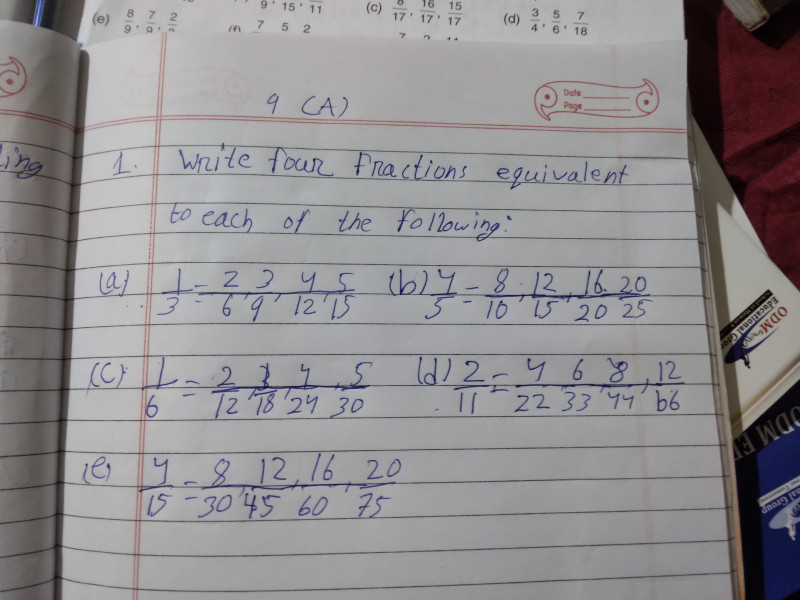 (e) 8/9, 7/9, 2/
9, 15, 11
(c) 8/17, 16/17, 15/17
(d) 3/4, 5/6, 7/18
(f) 7 5 2
9 (A)
Date
Page
ing
1. Write four fractions equivalent
to each of the following:
(a) 1/3 = 2/6, 3/9, 4/12, 5/15 (b) 4/5 = 8/10, 12/15, 16/20, 20/25
(c) 1/6 = 2/12, 3/18, 4/24, 5/30 (d) 2/11 = 4/22, 6/33, 8/44, 12/66
(e) 4/15 = 8/30, 12/45, 16/60, 20/75
ODM
Educational Group
ODM E